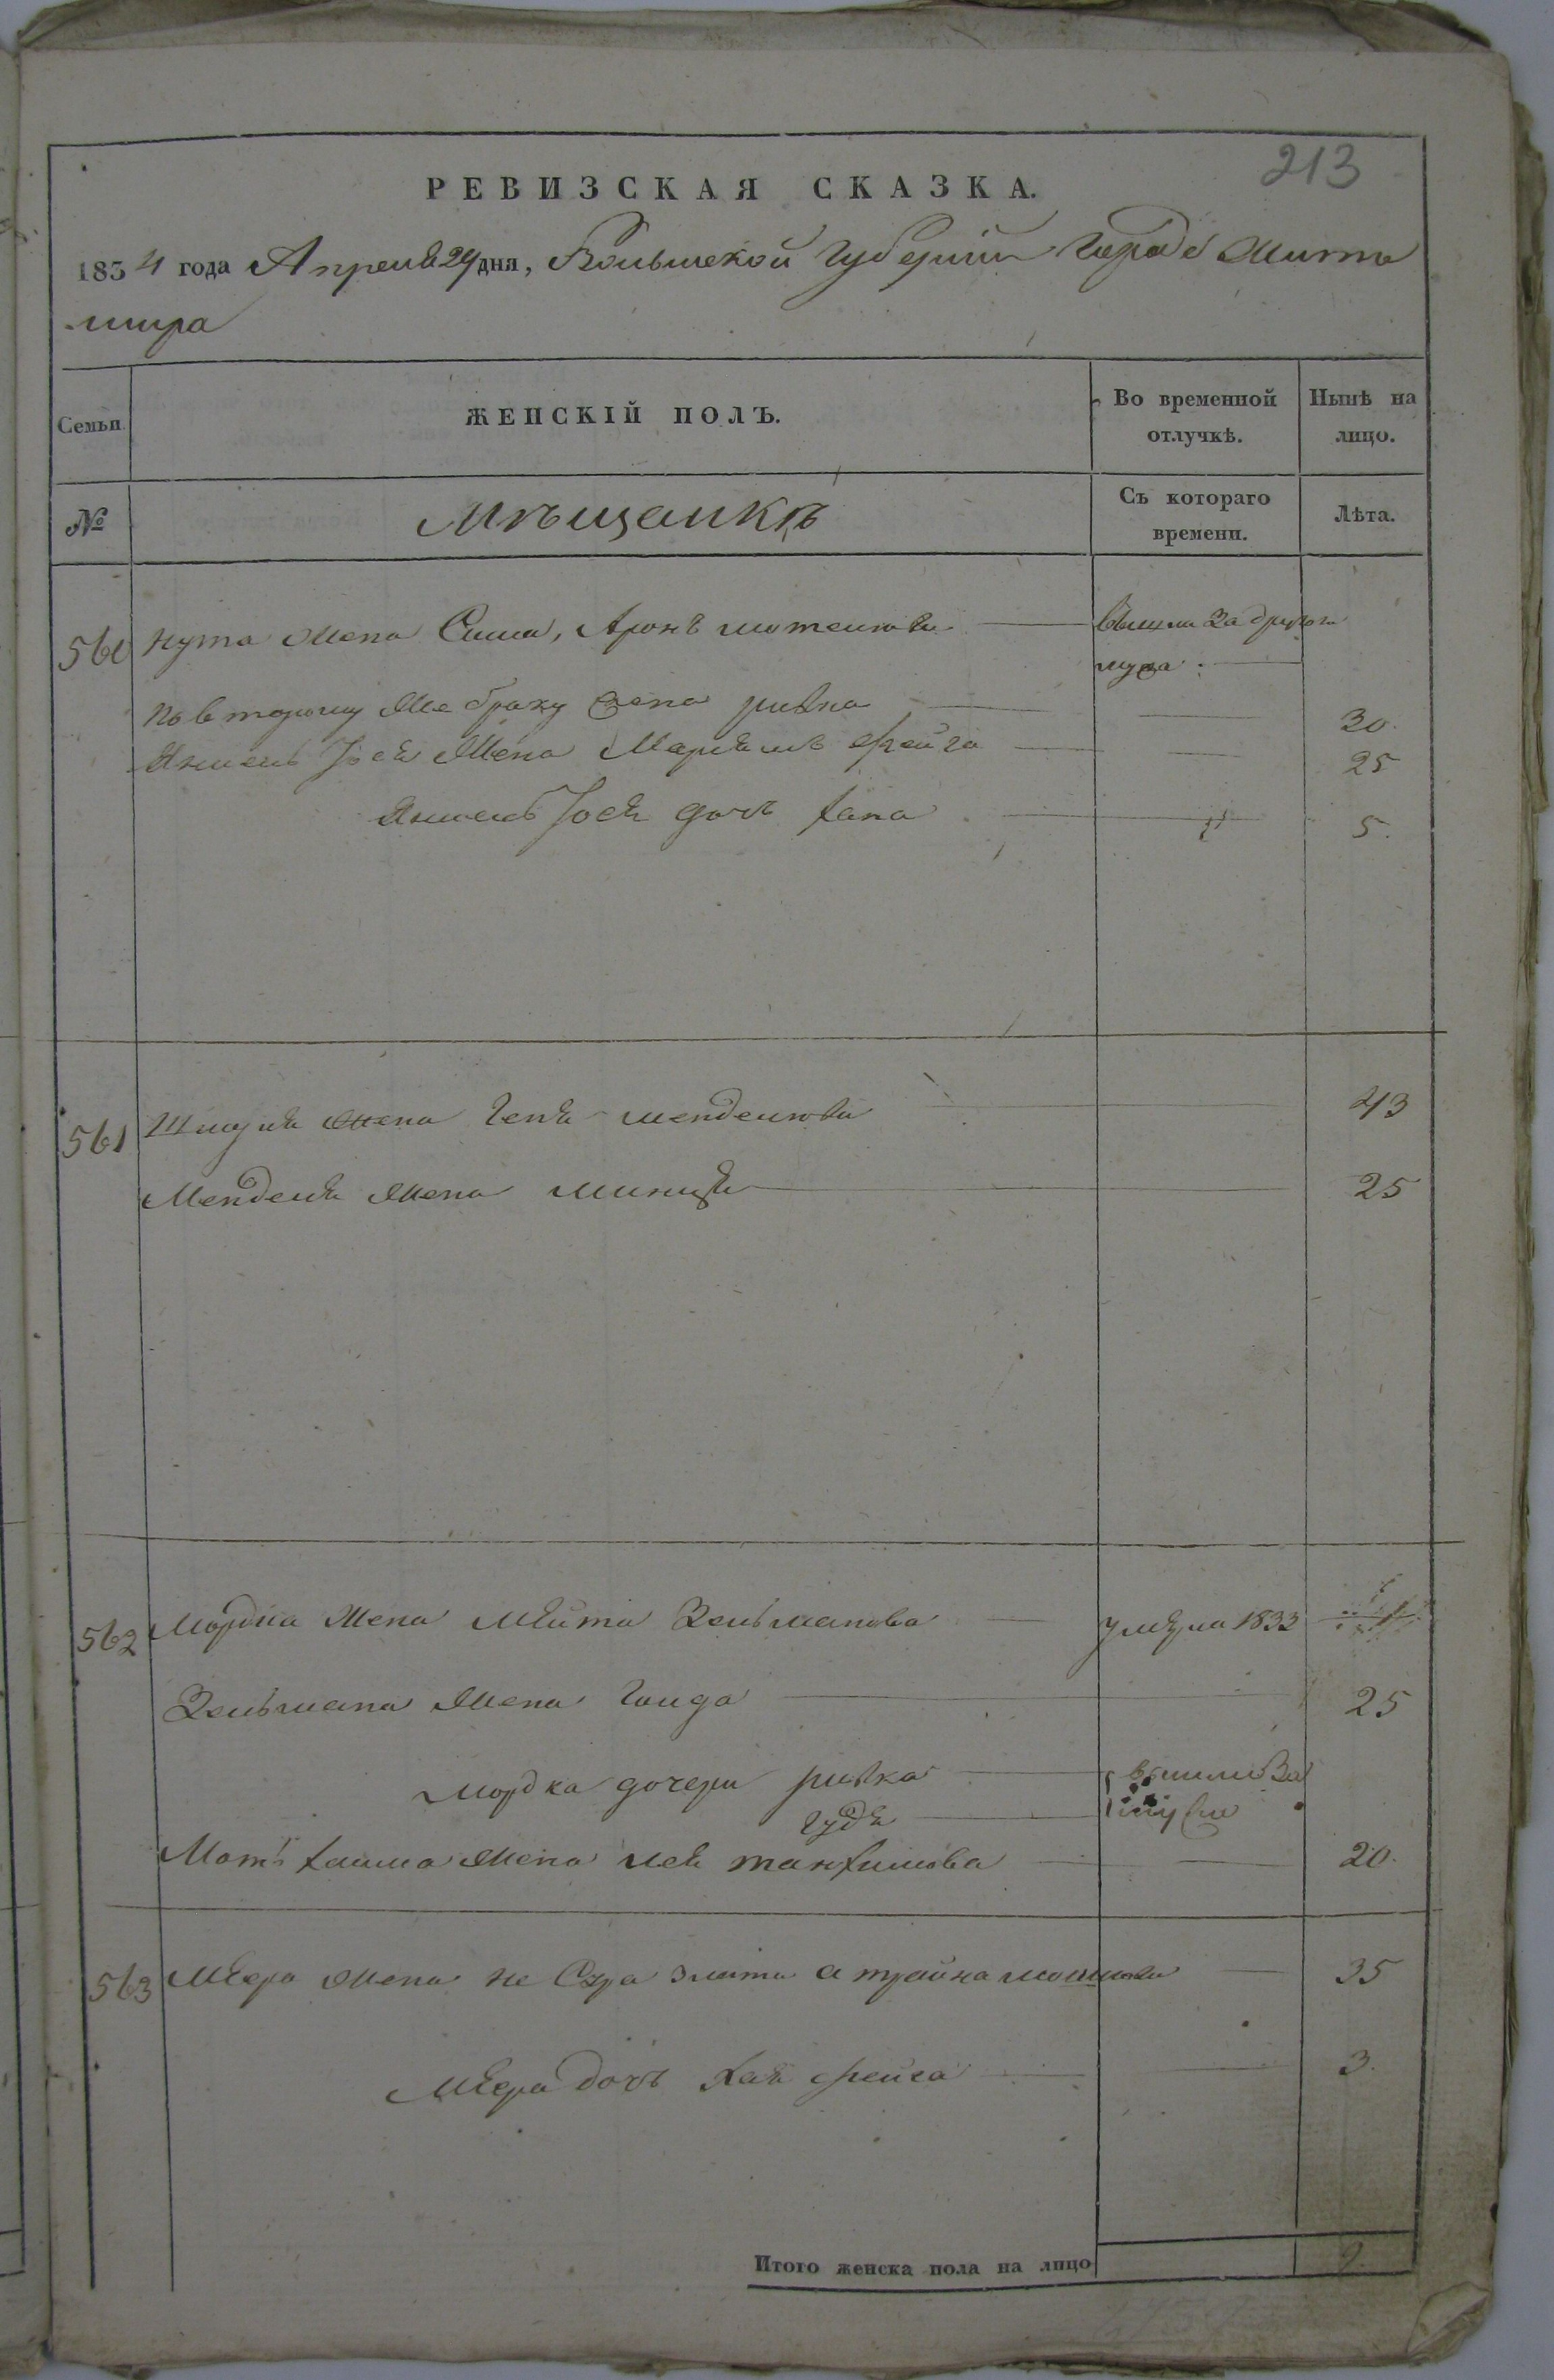 213
РЕВИЗСКАЯ СКАЗКА.
1834 года Апреля 24 дня, Волынской Губерніи Города Жито
мира
Семьи
ЖЕНСКІЙ ПОЛЪ.
Во временной отлучкѣ.
Нынѣ на лицо.
№
Мѣщанкѣ
Съ котораго времени.
Лѣта.
560 Нута Жена Сима, Аронъ мошекова вышла за другого
мужа
по второму же браку жена ривка 30.
Яншель Іося Жена Маріямъ фейга 25
Яншель Іося дочь хана 5.
561 Шмуля жена Геня менделюва 43
Менделя жена минця 25
562 Мордка Жена Мѣита Зельманова умѣрла 1833
Зельмана Жена Голда 25
мордка дочери ривка вышли За
гудя мужи
Моть хаима жена лея танхимова 20.
563 Мѣера жена не Сура злата а трайна 35
мѣера дочь хая фейга 3.
Итого женска пола на лицо 9.